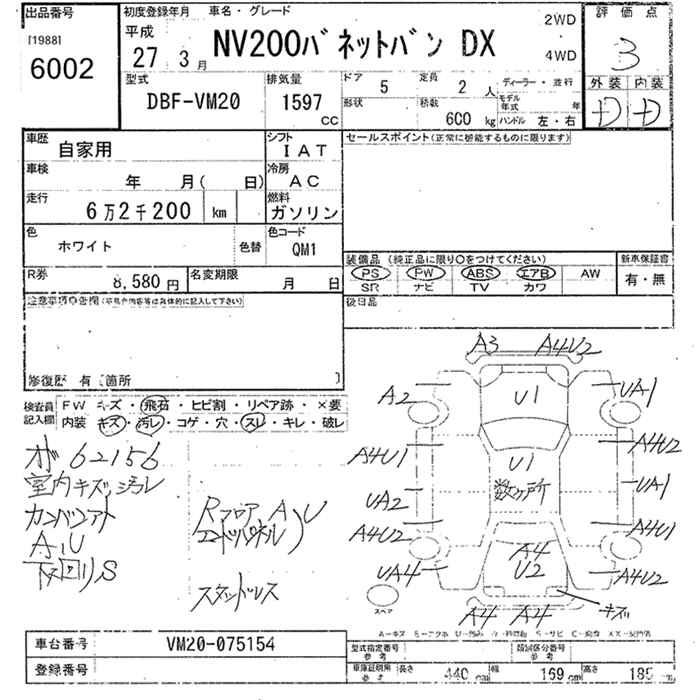 出品番号
[1988]
6002
初度登録年月 車名・グレード
平成
27 3月
NV200バネットバン DX
2WD
4WD
評価点
3
型式
DBF-VM20
排気量
1597
cc
ドア
5
定員
2人
ディーラー・並行
形状
積載
600
kg
モデル年式
年
ハンドル 左・右
外装 内装
D D
車歴
自家用
シフト
IAT
セールスポイント(正常に機能するものに限ります)
車検
年 月( 日)
冷房
AC
走行
6万2千200 km
燃料
ガソリン
色
ホワイト
色替
色コード
QM1
装備品 (純正品に限り○をつけてください)
新車保証書
PS PW ABS エアB AW
SR ナビ TV カワ
有・無
R券
8,580円
名変期限
月 日
後日品
注意事項申告欄
修復歴 有 [箇所 ]
検査員記入欄
FW キズ・飛石・ヒビ割・リペア跡・×要
内装 キズ・汚レ・コゲ・穴・スレ・キレ・破レ
62156
室内キズ、汚レ
カンバンアト
A,U
下回りS
Rフロア A,U
エンドパネル
スタッドレス
A3 A4U2
A2 U1 UA1
A4U1 U1 A4U2
数ヶ所
UA2 UA1
A4U2 A4 A4U1
UA4 U2 A4U2
スペア
A4 A4 キズ
車台番号
VM20-075154
登録番号
型式指定番号
参考
類別区分番号
参考
車庫証明用
参考
長さ
440 cm
幅
169 cm
高さ
185 cm